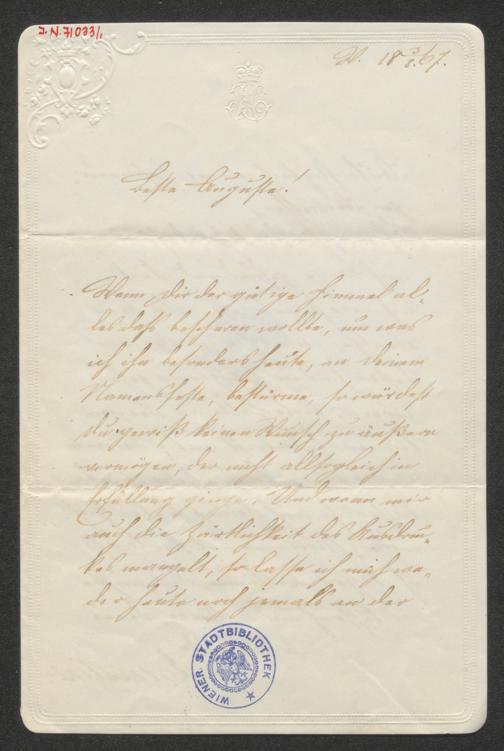 I. N. 71033/1
W. 18 3/8. 67.
Beste Auguste!
Wenn Dir der gütige Himmel al-
les daß bescheren wollte, um was
ich ihn besonders heute, an Deinem
Namensfeste, bestürme, so würdest
Du gewiß keinen Wunsch zu äußern
vermögen, der nicht allsogleich in
Erfüllung ginge. Und wenn mir
auch die Zärtlichkeit des Ausdru-
kes mangelt, so lasse ich mich we-
der heute noch jemals an der
WIENER STADTBIBLIOTHEK